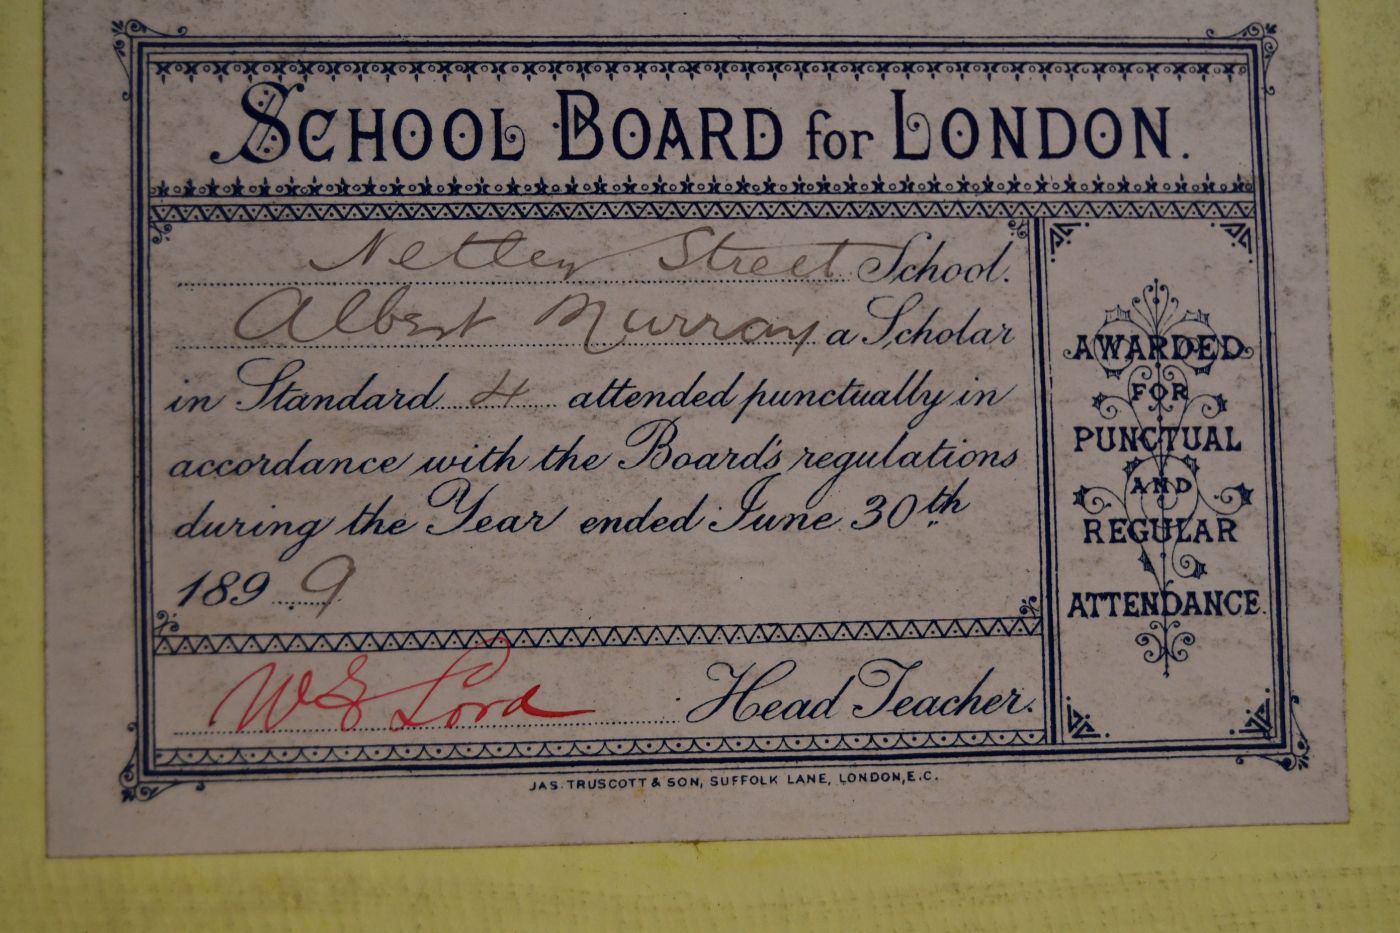 SCHOOL BOARD for LONDON.
Netley Street School.
Albert Murray a Scholar
in Standard 4 attended punctually in
accordance with the Board's regulations
during the Year ended June 30th
1899
W S Lord Head Teacher.
AWARDED
FOR
PUNCTUAL
AND
REGULAR
ATTENDANCE.
JAS. TRUSCOTT & SON, SUFFOLK LANE, LONDON, E.C.